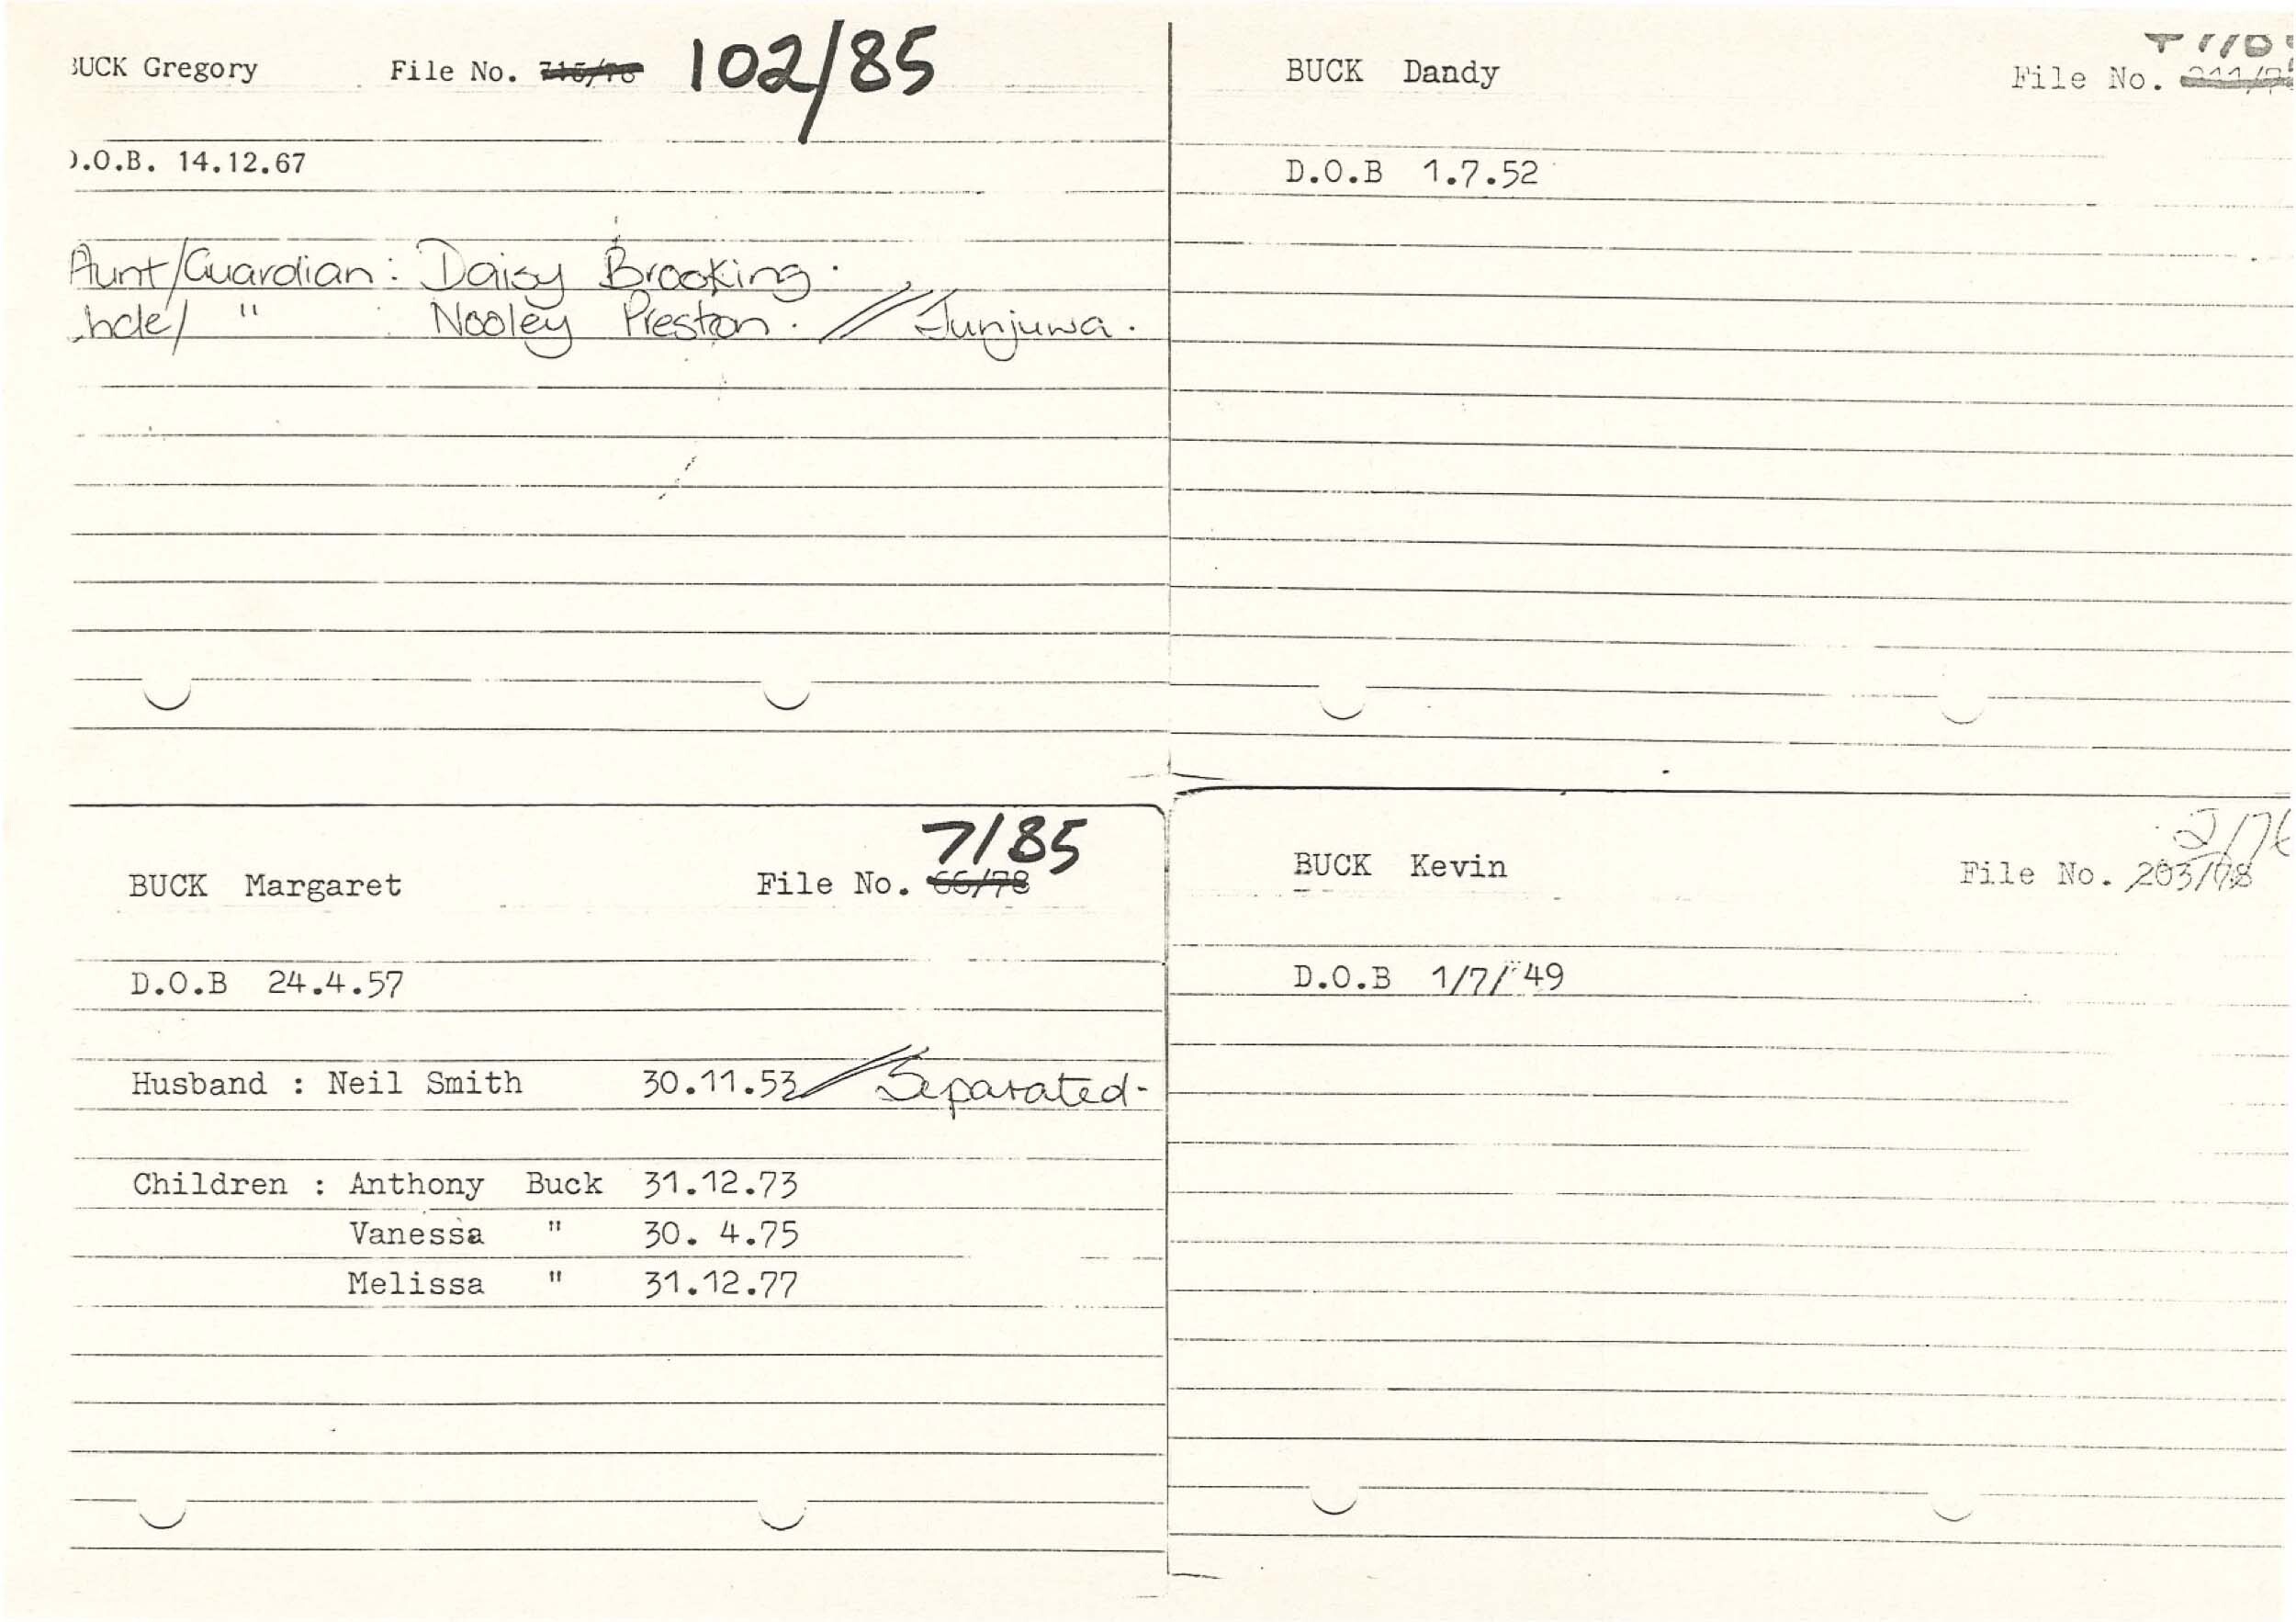 BUCK Gregory File No. 102/85
D.O.B. 14.12.67
Aunt/Guardian: Daisy Brooking.
" : Nooley Preston. // Junjuwa.
BUCK Dandy File No.
D.O.B 1.7.52
BUCK Margaret File No. 66/78 7/85
D.O.B 24.4.57
Husband : Neil Smith 30.11.53 // Separated-
Children : Anthony Buck 31.12.73
Vanessa " 30. 4.75
Melissa " 31.12.77
BUCK Kevin File No. 203/78
D.O.B 1/7/ 49